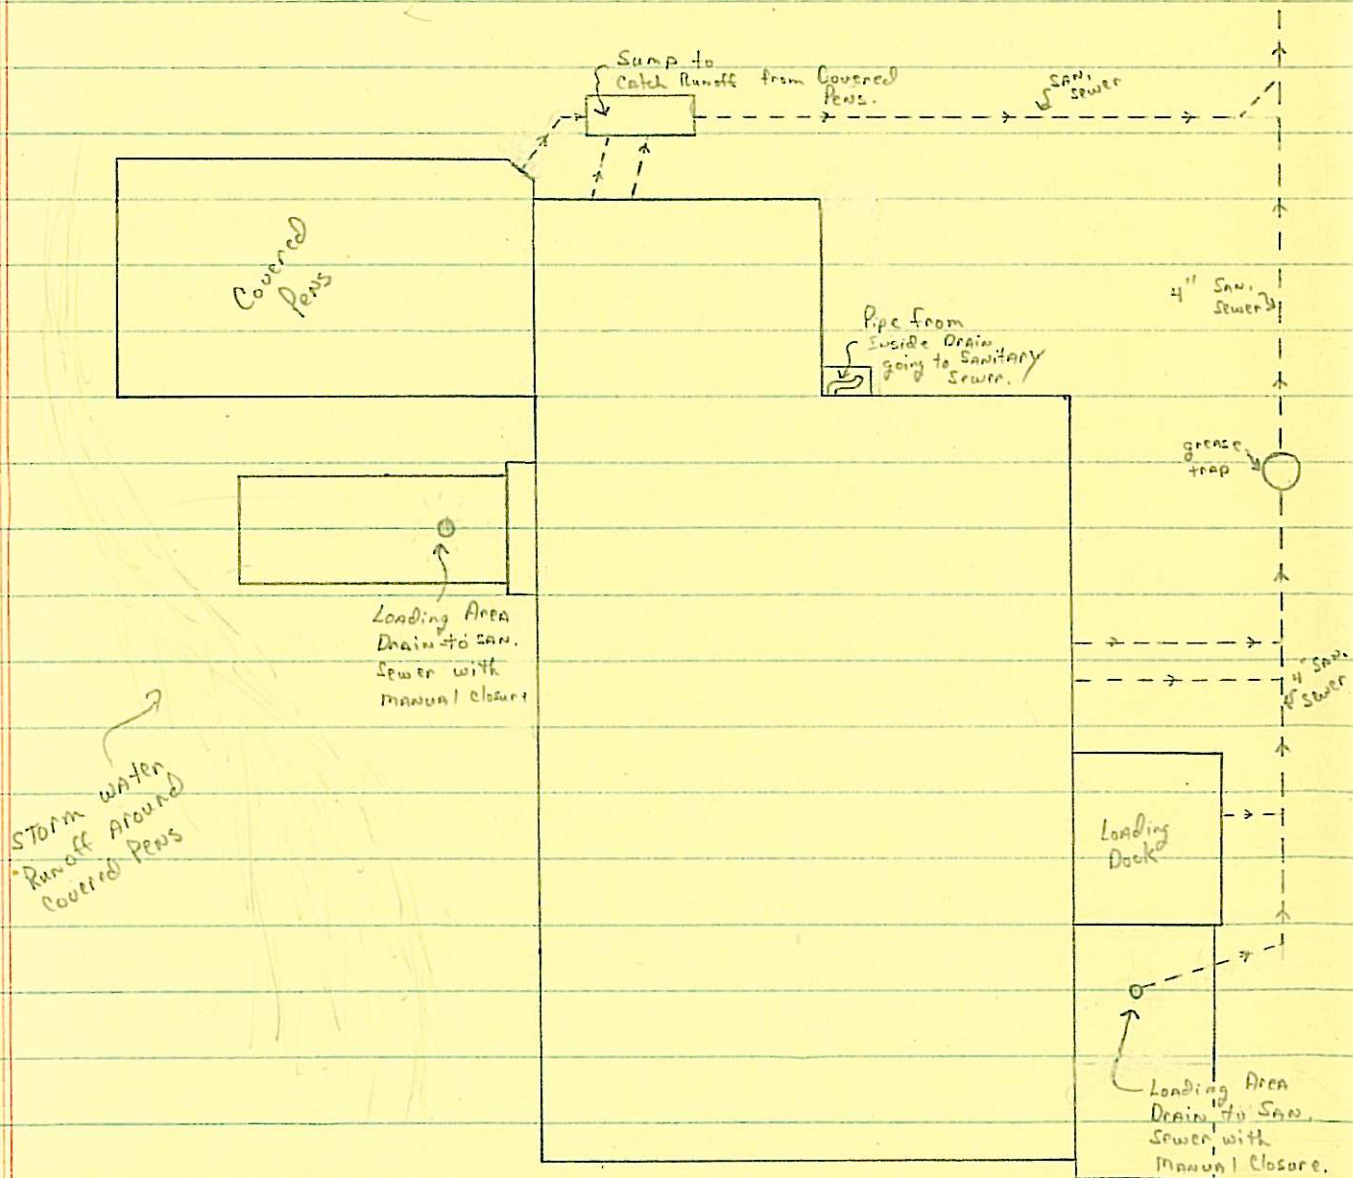 Sump to
Catch Runoff from Covered
Pens.
SAN.
Sewer
Covered
Pens
4" SAN.
Sewer
Pipe from
Inside Drain
going to SANitary
Sewer.
grease
trap
Loading AreA
Drain to SAN.
Sewer with
MANUAL Closure
4" SAN.
Sewer
STORM WATER
Runoff Around
Covered Pens
Loading
Dock
Loading Area
Drain to SAN.
Sewer with
MANUAL Closure.